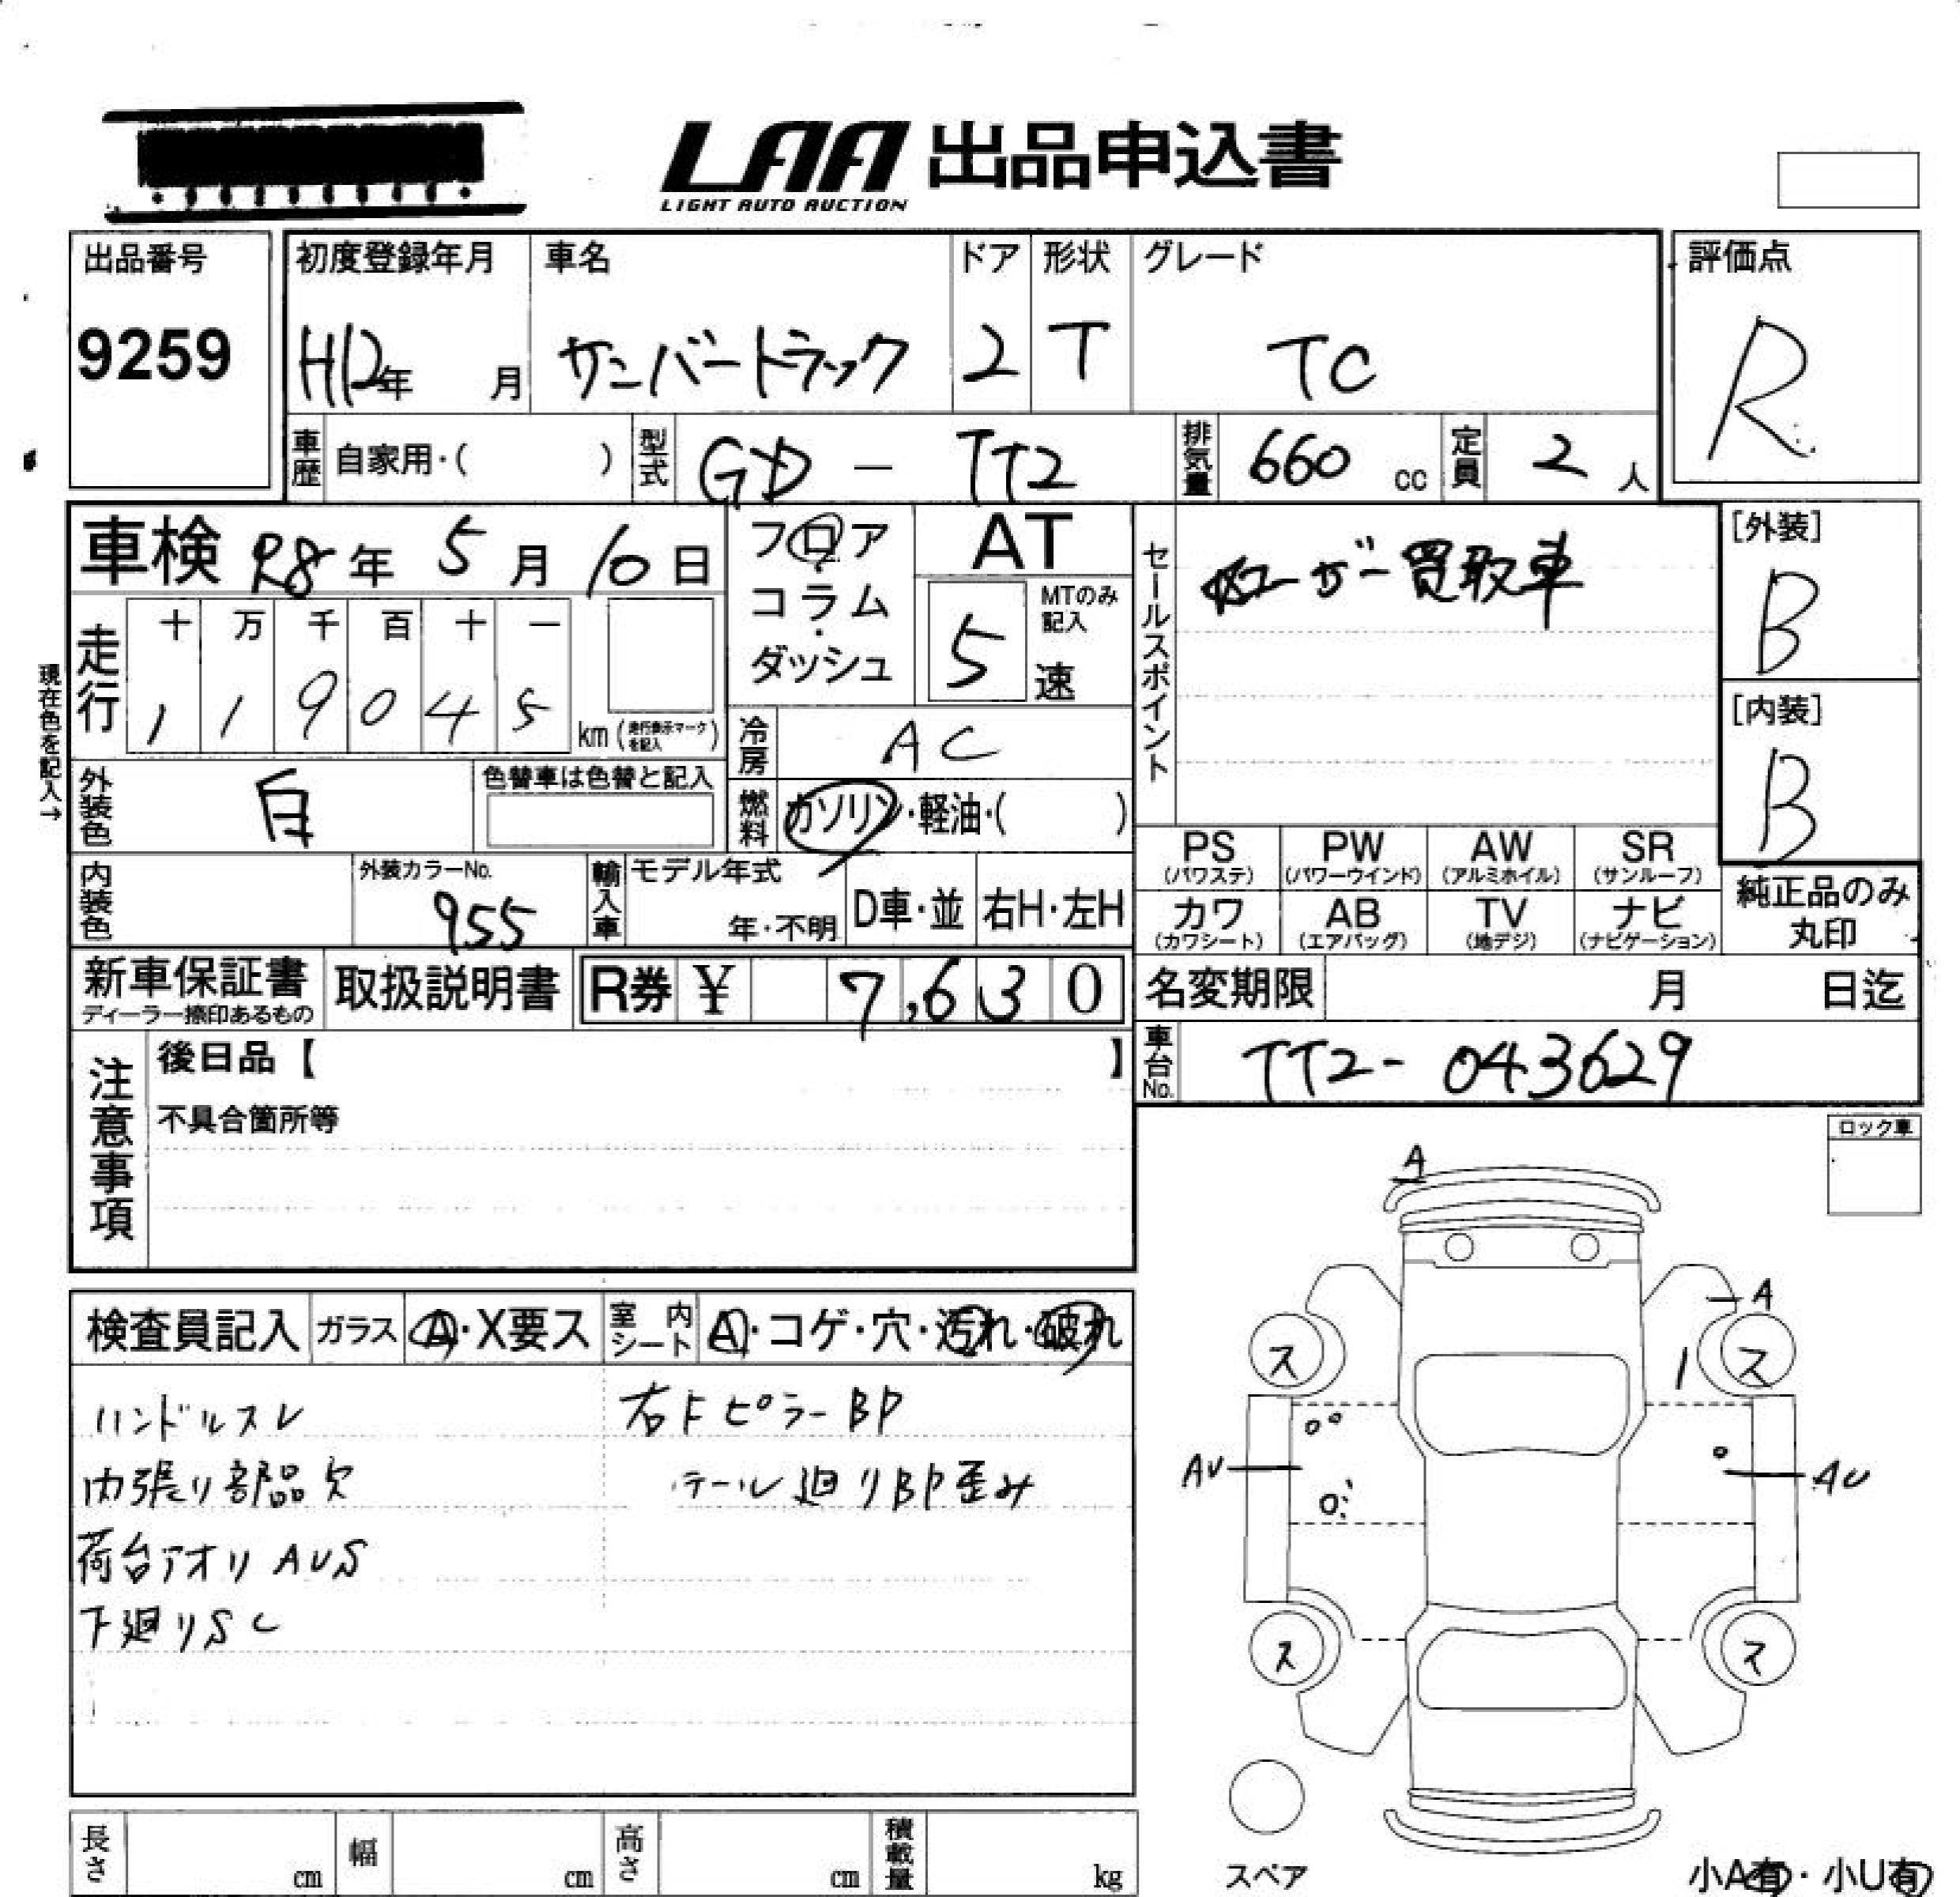 LAA 出品申込書
LIGHT AUTO AUCTION
出品番号
9259
初度登録年月 車名 ドア 形状 グレード
H12年 月 サンバートラック 2 T TC
評価点
R
車歴 自家用・( ) 型式 GD - TT2 排気量 660 cc 定員 2 人
車検 R8年 5月 10日
フロア・コラム・ダッシュ
AT
MTのみ記入
5 速
セールスポイント
ユーザー買取車
[外装]
B
[内装]
B
現在色を記入→
走行
十 万 千 百 十 一
1 1 9 0 4 5 km (走行表示マークを記入)
冷房 AC
外装色 白 色替車は色替と記入
燃料 ガソリン・軽油・( )
PS (パワステ) PW (パワーウインド) AW (アルミホイル) SR (サンルーフ)
カワ (カワシート) AB (エアバッグ) TV (地デジ) ナビ (ナビゲーション)
純正品のみ丸印
内装色 外装カラーNo. 955
輸入車 モデル年式 年・不明 D車・並 右H・左H
新車保証書 ディーラー捺印あるもの
取扱説明書
R券 ¥ 7,630
名変期限 月 日迄
車台No. TT2-043629
注意事項
後日品【 】
不具合箇所等
ロック車
検査員記入 ガラス A・X要ス 室内シート A・コゲ・穴・汚れ・破れ
ハンドルスレ 右Fピラー BP
内張り部品欠 テール廻りBP歪み
荷台アオリ AUS
下廻りSC
A
A
ス ス
AU AU
ス ス
スペア
小A有・小U有
長さ cm 幅 cm 高さ cm 積載量 kg